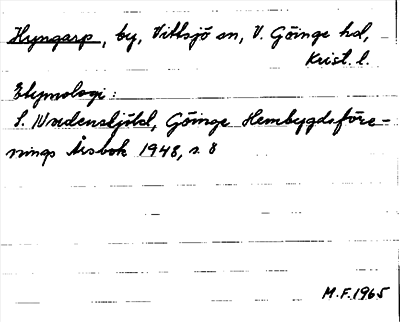 Hyngarp, by, Vittsjö sn, V. Göinge hd,
Krist. l.
Etymologi:
S. Göinge Hembygdsföre-
nings Årsbok 1948, s. 8
M.F. 1965